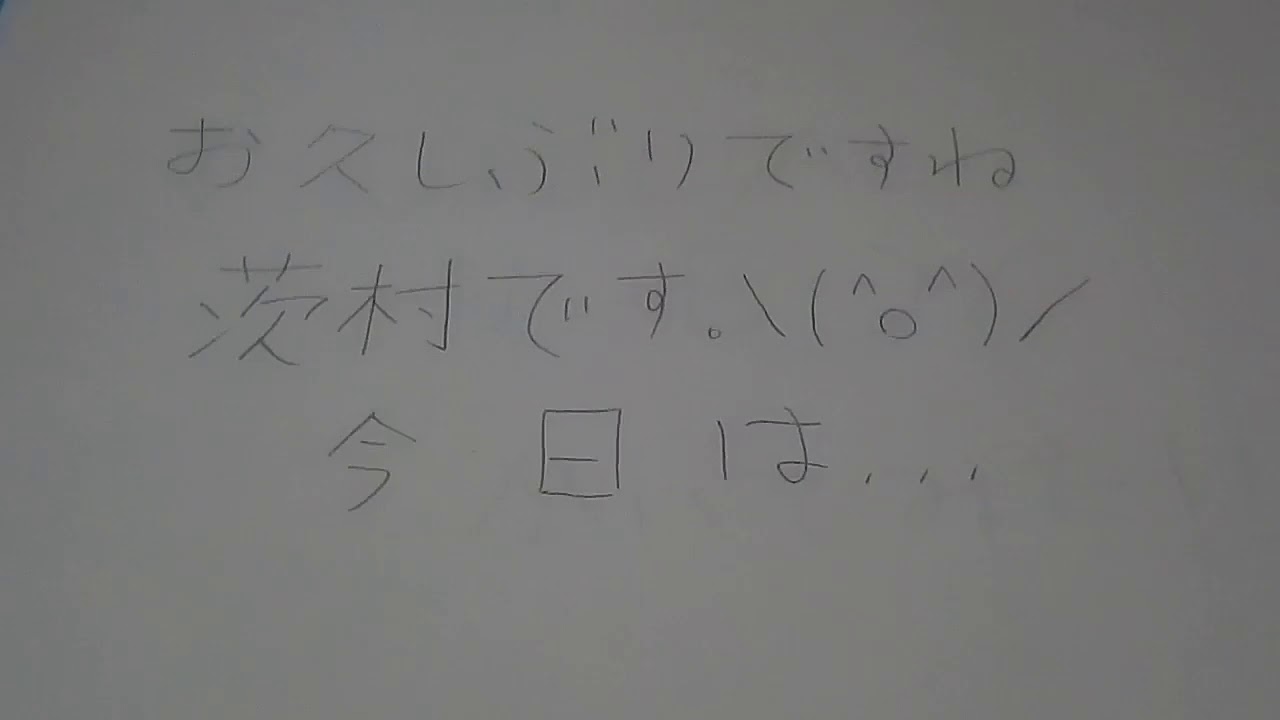 お久しぶりですね
茨村です。\(^o^)／
今日は...